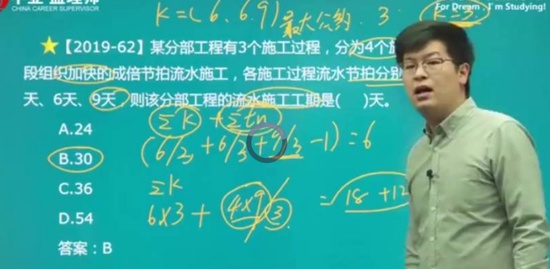 CHINA CAREER SUPERVISION
For Dream , I'm Studying!
K=(6、6、9)最大公约、3、 K=3、
★【2019-62】某分部工程有3个施工过程，分为4个
段组织加快的成倍节拍流水施工，各施工过程流水节拍分别
天、6天、9天，则该分部工程的流水施工工期是( )天。
A.24
Σk +Σtn
B.30
(6/3 + 6/3 + 9/3 -1) = 6
C.36
Σk
6×3 + 4×9/3 = 18 +12
D.54
答案：B